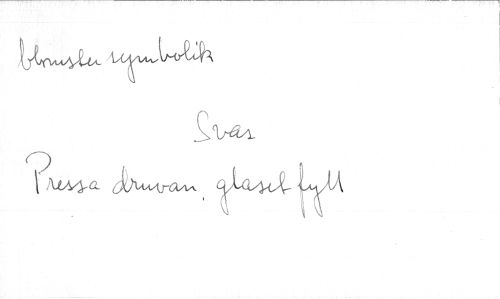 blomstersymbolik
Svar
Pressa druvan, glaset fyll